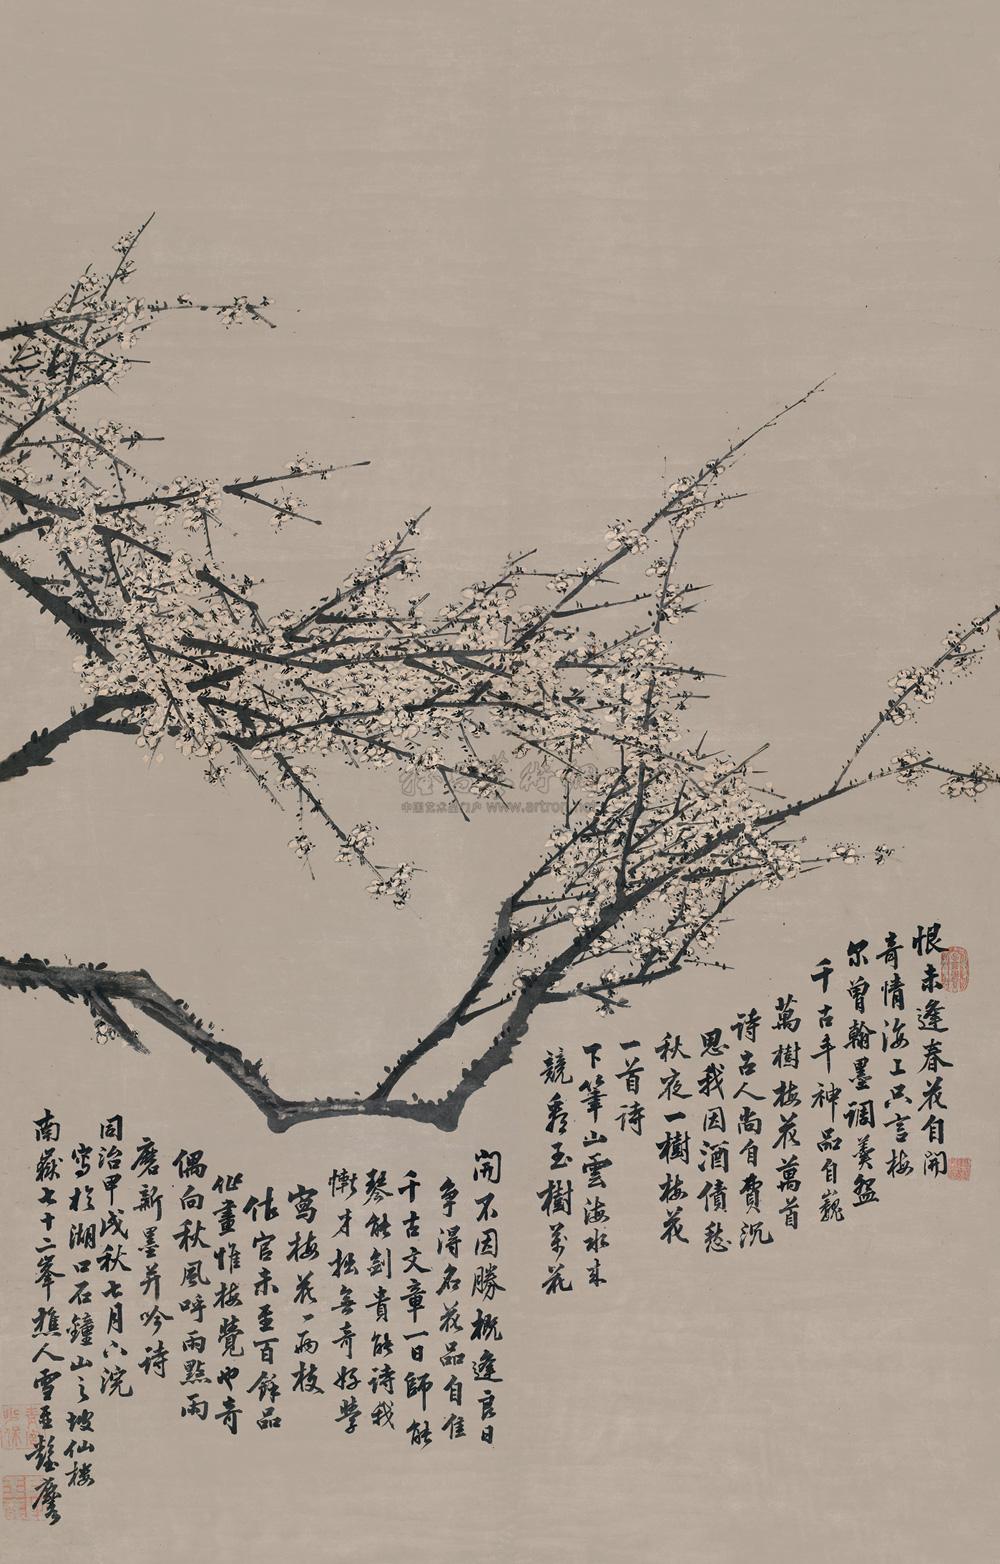 恨未逢春花自開
奇情海上只言梅
尔曾翰墨調羹盌
千古年神品自巍
萬樹梅花萬首
詩古人尚自費沉
思我因酒債愁
秋夜一樹梅花
一首詩
下筆山雲海水來
競秀玉樹萬花
開不因勝概逢良日
爭得名花品自佳
千古文章一日師能
琴能劍貴能詩我
慚才拙無奇好學
寫梅花一兩枝
作官未至百餘品
作畫惟梅覺也奇
偶向秋風呼雨點雨
磨新墨并吟詩
同治甲戌秋七月下浣
寫於湖口石鐘山之坡仙樓
南嶽七十二峯樵人雪
中国艺术品门户 www.artron.net